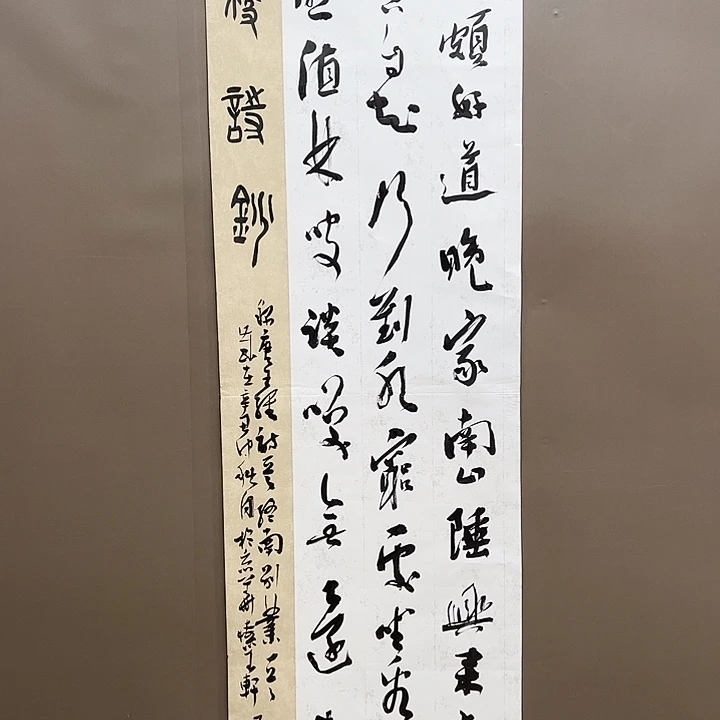 頗好道晚家南山陲興來
自知行到水窮處坐看
值林叟談咲無還
鈔
唐王維詩終南別業一首
歲在辛丑仲秋月於京華軒